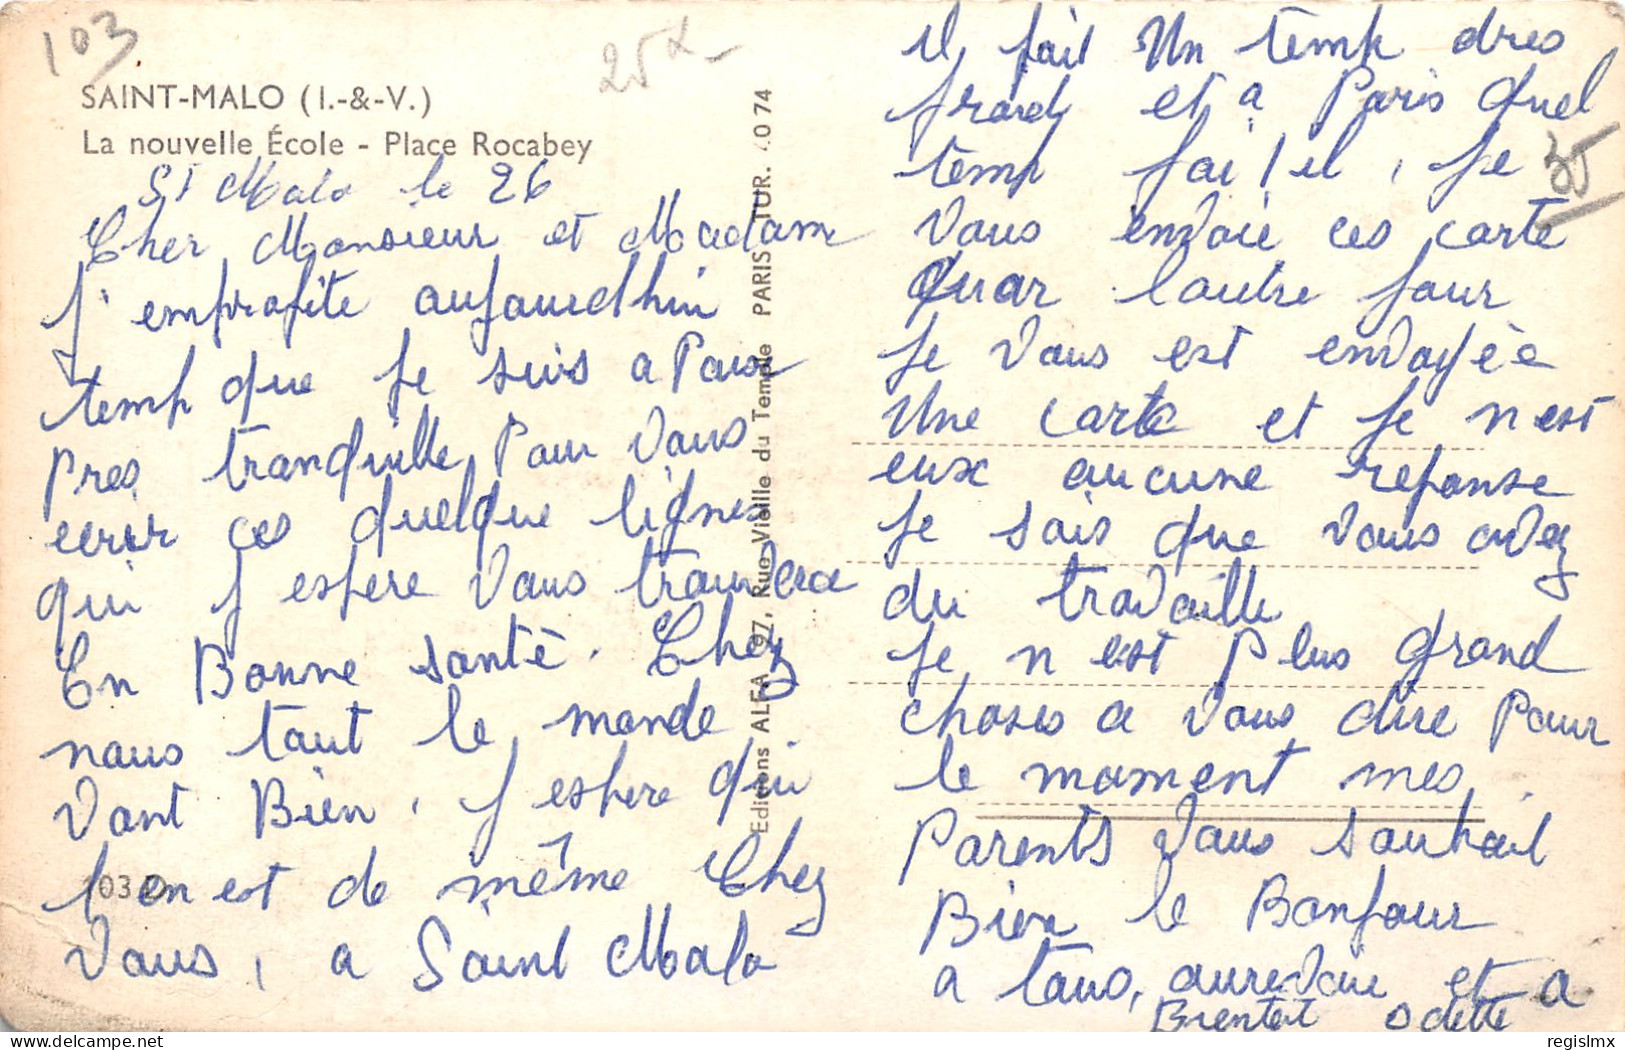 103
25
SAINT-MALO (I.-&-V.)
La nouvelle École - Place Rocabey
St Malo le 26
Cher Monsieur et Madame
J'emprofite aujourdhui
temp que je suis a
Pres tranquille Pour Vous
ecrir ces quelque lignes
qui j'espere Vous trouvera
En Bonne santè. Chez
nous tout le monde
Vont Bien, j'espere qui
l'en est de même Chez
Vous, a Saint Malo
103
Editions ALFA, 97, Rue Vieille du Temple PARIS TUR. 4074
il fait Un temp dres
froid et a Paris Quel
temp fai/il, je
35
Vous envoie ces carte
quar l'autre jour
je Vous est envoyèe
Une carte et je n'est
eux aucune reponse
je sais que Vous avez
du travaille
je n'est Plus Grand
choses a Vous dire Pour
le moment mes
Parents Vous souhait
Bien le Bonjour
a tous, aurevoire et a
Bientot Odette
regislmx